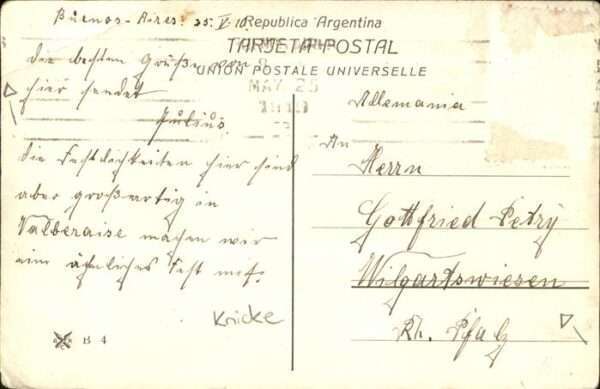 Buenos-Aires. 25.V.10.
Republica Argentina
TARJETA POSTAL
UNION POSTALE UNIVERSELLE
MAY 25
die besten Grüße von
hier sendet
Julius.
die Festlichkeiten hier sind
aber großartig in
machen wir
ein ähnliches Fest mit.
Knicke
B 4
Allemania
An
Herrn
Gottfried Petry
Wilgartswiesen
Rh. Pfalz